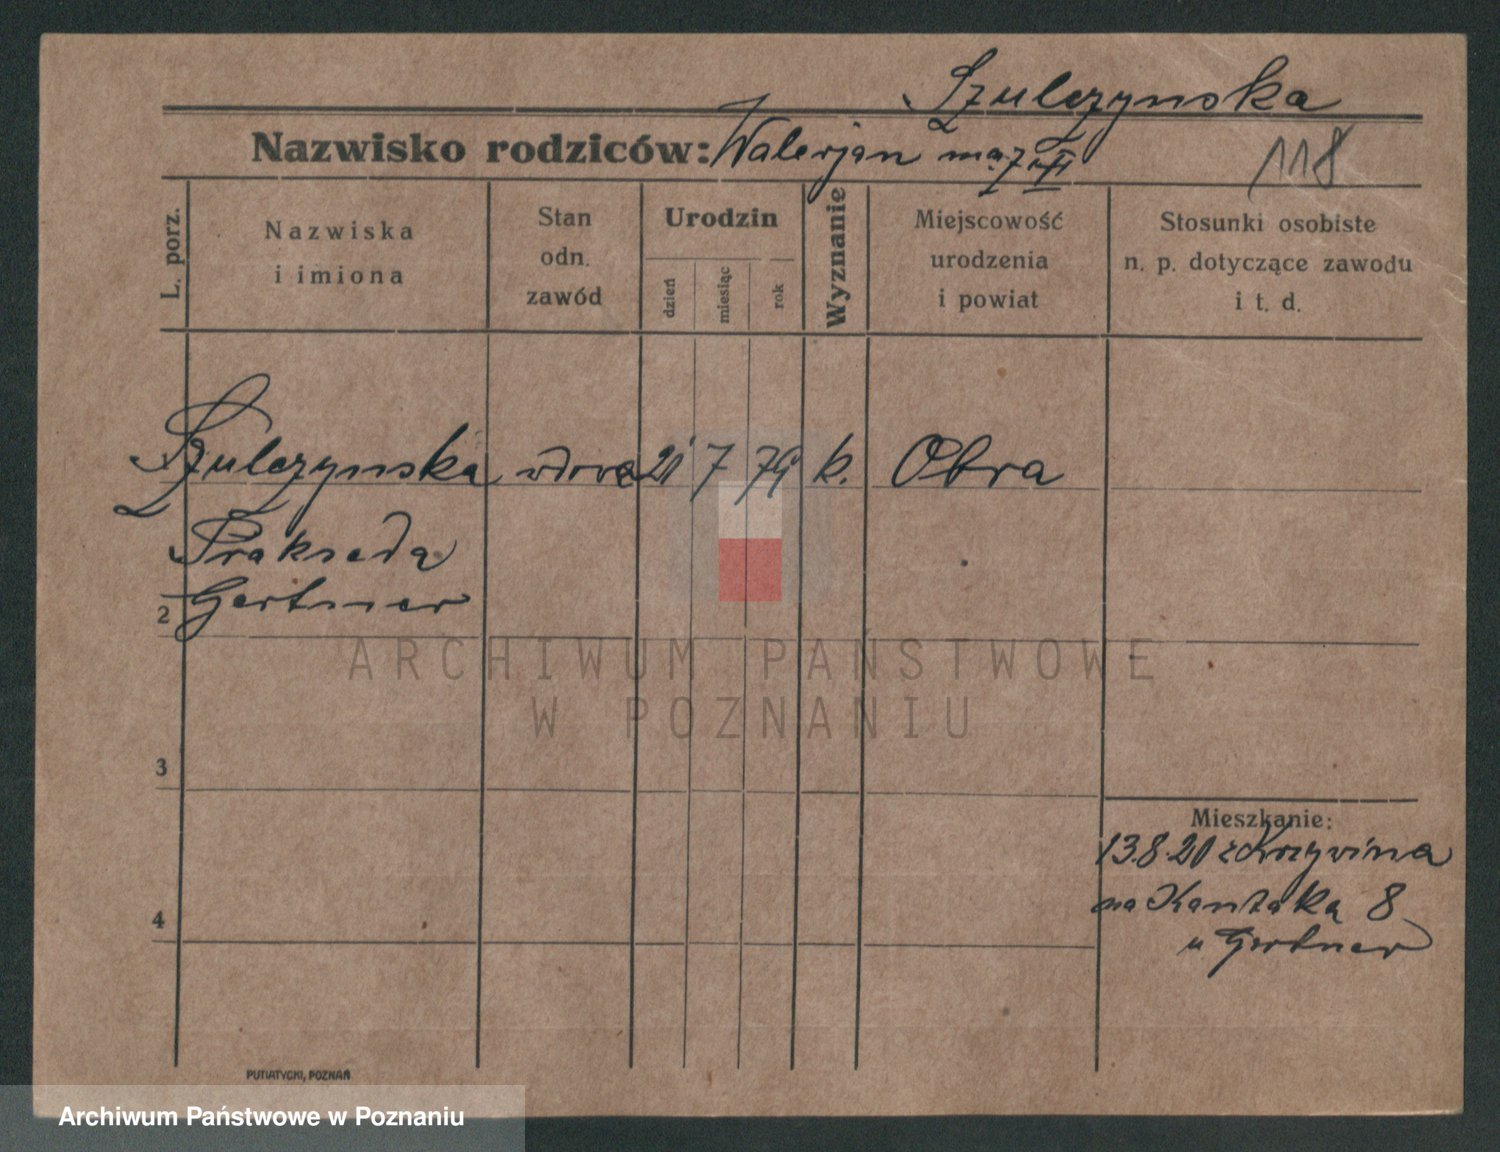 Szulczynska
Nazwisko rodziców: Walerjan
118
L. porz.
Nazwiska
i imiona
Stan
odn.
zawód
Urodzin
dzień
miesiąc
rok
Wyznanie
Miejscowość
urodzenia
i powiat
Stosunki osobiste
n. p. dotyczące zawodu
i t. d.
Szulczynska wdowa 21 7 79 k. Obra
Prakseda
2 Gertner
ARCHIWUM PAŃSTWOWE
W POZNANIU
3
Mieszkanie:
13.8.20 z Krzywina
4
na Kantaka 8
u Gertner
PUTIATYCKI, POZNAŃ
Archiwum Państwowe w Poznaniu